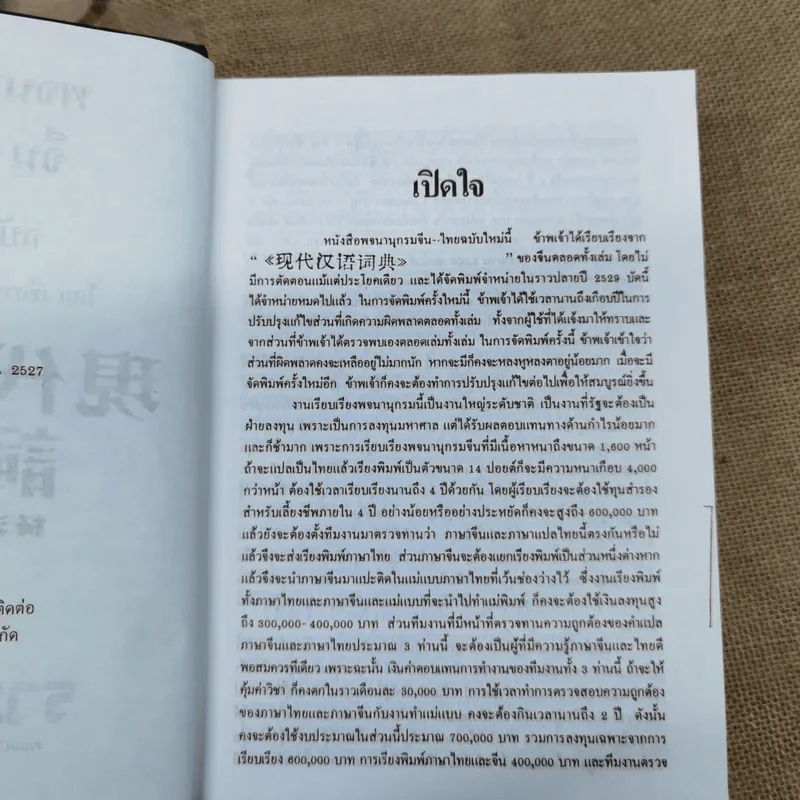 2527
現代
ติดต่อ
กัด
เปิดใจ
หนังสือพจนานุกรมจีน-ไทยฉบับใหม่นี้ ข้าพเจ้าได้เรียบเรียงจาก
"《现代汉语词典》 " ของจีนตลอดทั้งเล่ม โดยไม่
มีการตัดตอนแม้แต่ประโยคเดียว และได้จัดพิมพ์จำหน่ายในราวปลายปี 2529 บัดนี้
ได้จำหน่ายหมดไปแล้ว ในการจัดพิมพ์ครั้งใหม่นี้ ข้าพเจ้าได้ใช้เวลานานถึงเกือบปีในการ
ปรับปรุงแก้ไขส่วนที่เกิดความผิดพลาดตลอดทั้งเล่ม ทั้งจากผู้ใช้ที่ได้แจ้งมาให้ทราบและ
จากส่วนที่ข้าพเจ้าได้ตรวจพบเองตลอดเล่มทั้งเล่ม ในการจัดพิมพ์ครั้งนี้ ข้าพเจ้าเข้าใจว่า
ส่วนที่ผิดพลาดคงจะเหลืออยู่ไม่มากนัก หากจะมีก็คงจะหลงหูหลงตาอยู่น้อยมาก เมื่อจะมี
จัดพิมพ์ครั้งใหม่อีก ข้าพเจ้าก็คงจะต้องทำการปรับปรุงแก้ไขต่อไปเพื่อให้สมบูรณ์ยิ่งขึ้น
งานเรียบเรียงพจนานุกรมนี้เป็นงานใหญ่ระดับชาติ เป็นงานที่รัฐจะต้องเป็น
ฝ่ายลงทุน เพราะเป็นการลงทุนมหาศาล แต่ได้รับผลตอบแทนทางด้านกำไรน้อยมาก
และก็ช้ามาก เพราะการเรียบเรียงพจนานุกรมจีนที่มีเนื้อหาหนาถึงขนาด 1,600 หน้า
ถ้าจะแปลเป็นไทยแล้วเรียงพิมพ์เป็นตัวขนาด 14 ปอยต์ก็จะมีความหนาเกือบ 4,000
กว่าหน้า ต้องใช้เวลาเรียบเรียงนานถึง 4 ปีด้วยกัน โดยผู้เรียบเรียงจะต้องใช้ทุนสำรอง
สำหรับเลี้ยงชีพภายใน 4 ปี อย่างน้อยหรืออย่างประหยัดก็คงจะสูงถึง 600,000 บาท
แล้วยังจะต้องตั้งทีมงานมาตรวจทานว่า ภาษาจีนและภาษาแปลไทยนี้ตรงกันหรือไม่
แล้วจึงจะส่งเรียงพิมพ์ภาษาไทย ส่วนภาษาจีนจะต้องแยกเรียงพิมพ์เป็นส่วนหนึ่งต่างหาก
แล้วจึงจะนำภาษาจีนมาแปะติดในแม่แบบภาษาไทยที่เว้นช่องว่างไว้ ซึ่งงานเรียงพิมพ์
ทั้งภาษาไทยและภาษาจีนและแม่แบบที่จะนำไปทำแม่พิมพ์ ก็คงจะต้องใช้เงินลงทุนสูง
ถึง 300,000-400,000 บาท ส่วนทีมงานที่มีหน้าที่ตรวจทานความถูกต้องของคำแปล
ภาษาจีนและภาษาไทยประมาณ 3 ท่านนี้ จะต้องเป็นผู้ที่มีความรู้ภาษาจีนและไทยดี
พอสมควรทีเดียว เพราะฉะนั้น เงินค่าตอบแทนการทำงานของทีมงานทั้ง 3 ท่านนี้ ถ้าจะให้
คุ้มค่าวิชา ก็คงตกในราวเดือนละ 30,000 บาท การใช้เวลาทำการตรวจสอบความถูกต้อง
ของภาษาไทยและภาษาจีนกับงานทำแม่แบบ คงจะต้องกินเวลานานถึง 2 ปี ดังนั้น
คงจะต้องใช้งบประมาณในส่วนนี้ประมาณ 700,000 บาท รวมการลงทุนเฉพาะจากการ
เรียบเรียง 600,000 บาท การเรียงพิมพ์ภาษาไทยและจีน 400,000 บาท และทีมงานตรวจ